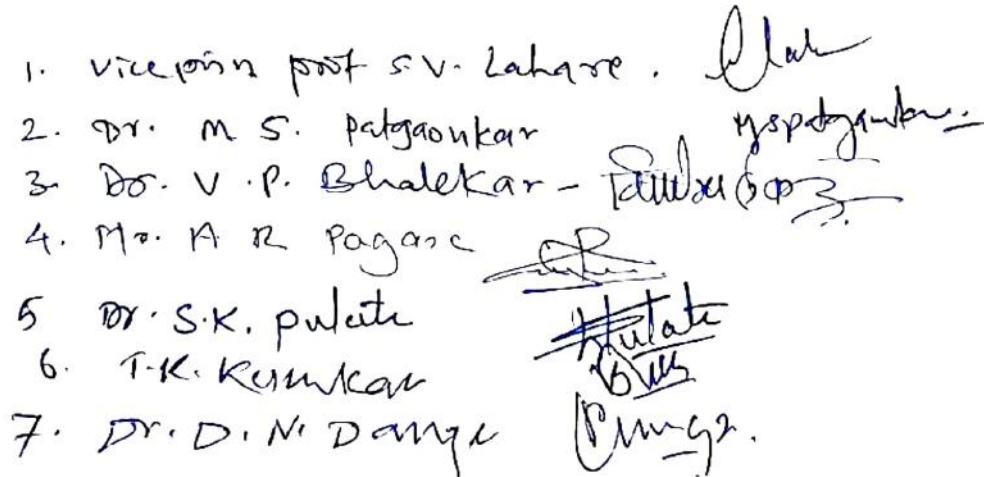 1. viceprin prof S.V. Lahare.
2. Dr. M S. Patgaonkar mspatgaonkar.
3. Dr. V.P. Bhalekar -
4. Mr. A R Pagare
5 Dr. S.K. Pulate Pulate
6. T.K. Kumkar
7. Dr. D. N. Dange